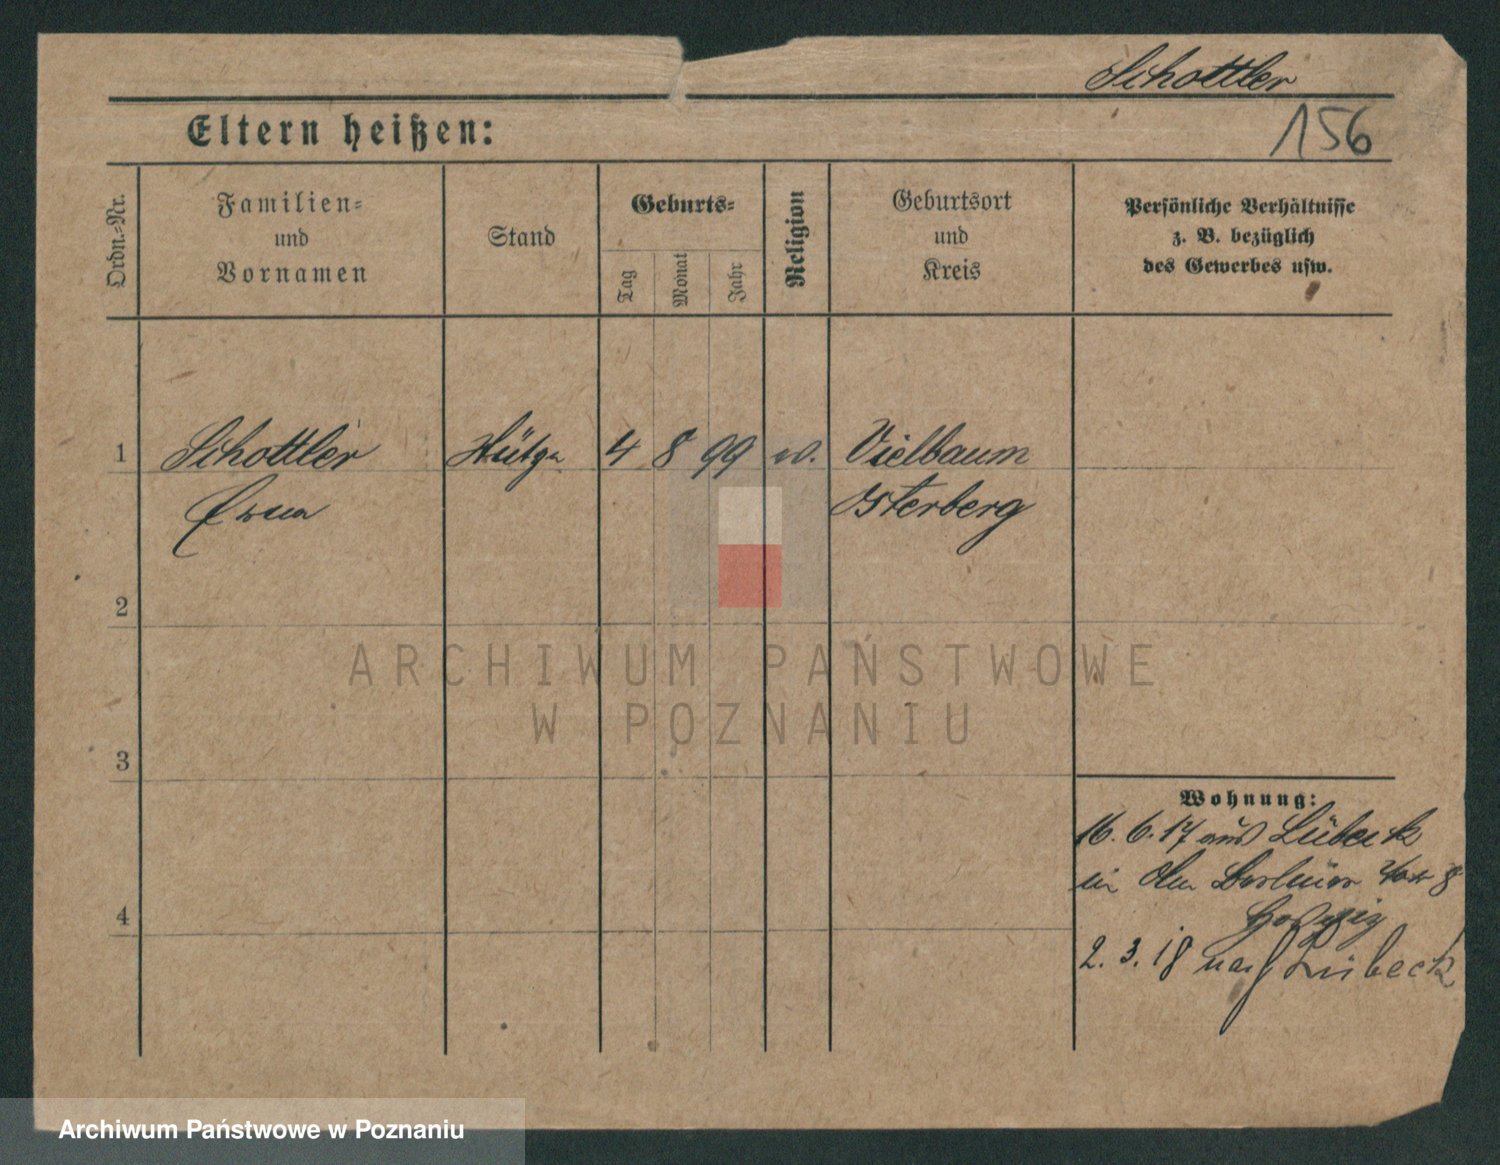 Schottler
Eltern heißen:
156
Ordn.-Nr.
Familien-
und
Vornamen
Stand
Geburts-
Tag
Monat
Jahr
Religion
Geburtsort
und
Kreis
Persönliche Verhältnisse
z. B. bezüglich
des Gewerbes usw.
1 Schottler 4 8 99 Vielbaum
Erna Osterberg
2
3
4
Wohnung:
16.6.17 aus Lübeck
in
2.3.18 nach Lübeck
ARCHIWUM PAŃSTWOWE
W POZNANIU
Archiwum Państwowe w Poznaniu